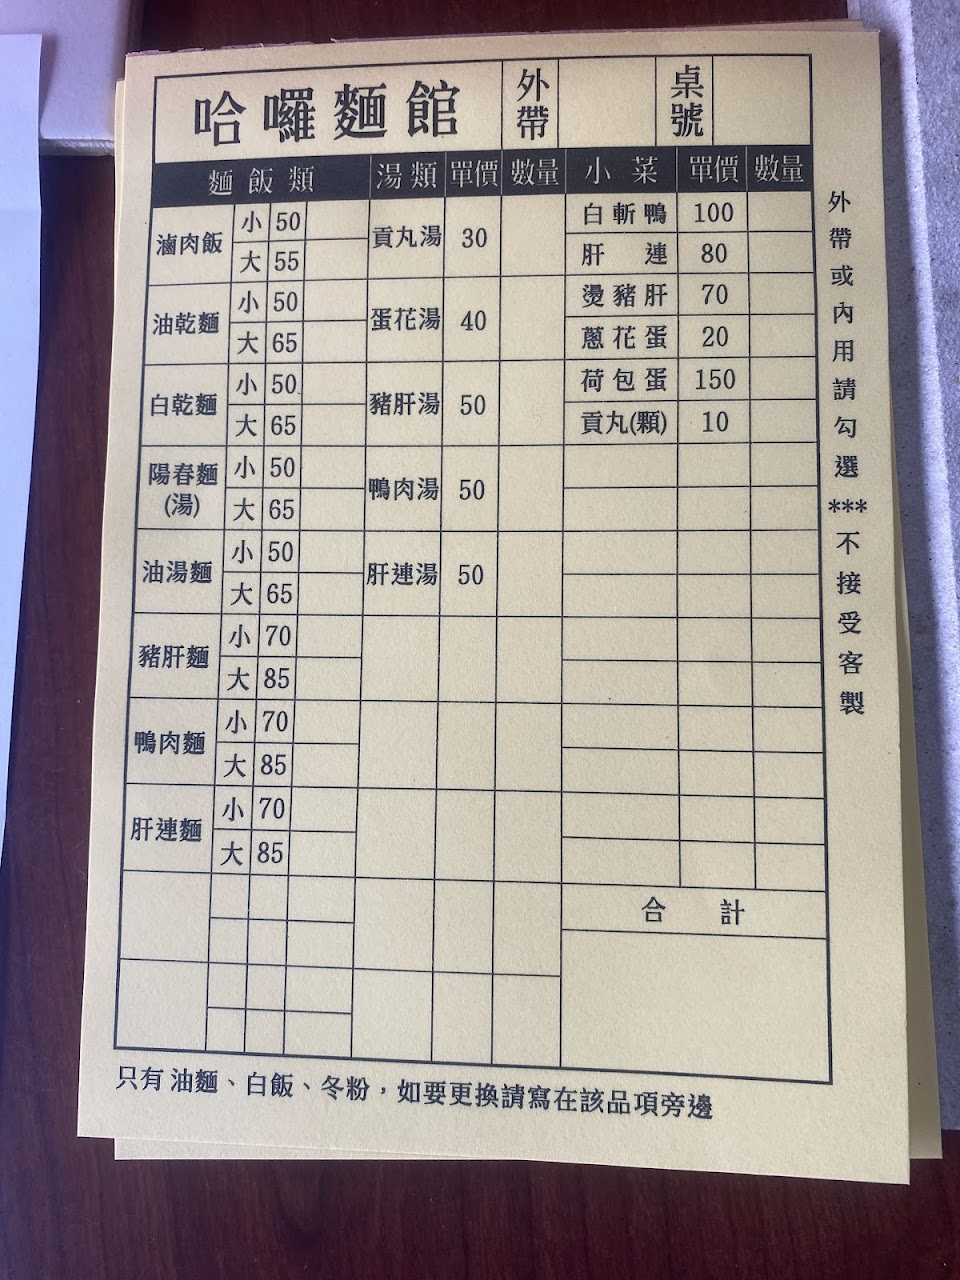 哈囉麵館 外帶 桌號
麵飯類 湯類 單價 數量 小菜 單價 數量
滷肉飯 小 50 大 55
油乾麵 小 50 大 65
白乾麵 小 50 大 65
陽春麵(湯) 小 50 大 65
油湯麵 小 50 大 65
豬肝麵 小 70 大 85
鴨肉麵 小 70 大 85
肝連麵 小 70 大 85
貢丸湯 30
蛋花湯 40
豬肝湯 50
鴨肉湯 50
肝連湯 50
白斬鴨 100
肝連 80
燙豬肝 70
蔥花蛋 20
荷包蛋 150
貢丸(顆) 10
合計
外帶或內用請勾選***不接受客製
只有油麵、白飯、冬粉，如要更換請寫在該品項旁邊